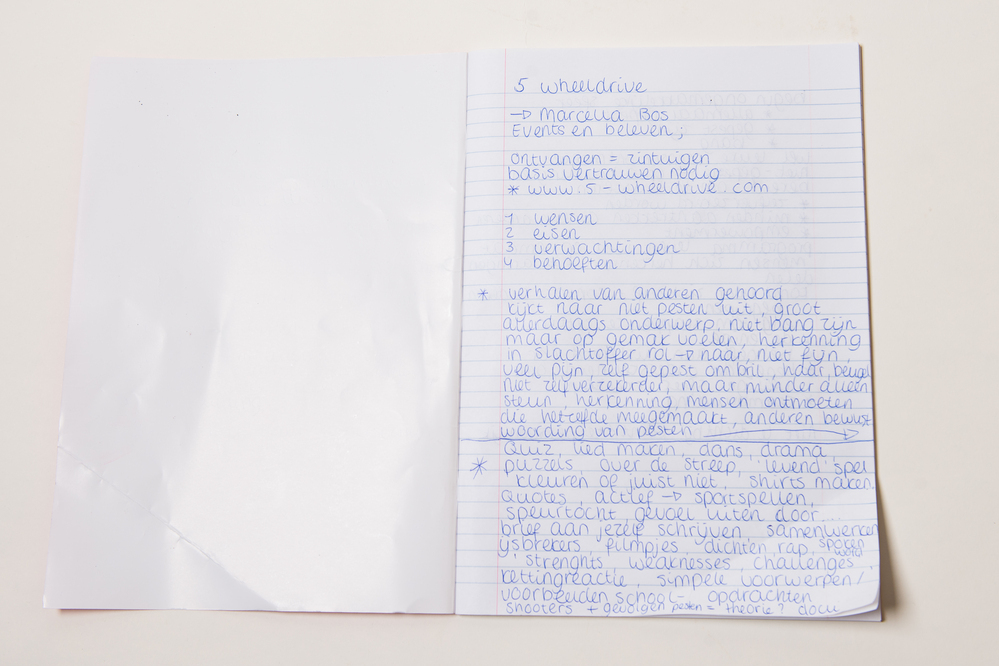 5 wheeldrive
→ Marcella Bos
Events en beleven;
ontvangen = zintuigen
basis vertrouwen nodig
* www.5-wheeldrive.com
1 wensen
2 eisen
3 verwachtingen
4 behoeften
* verhalen van anderen gehoord
kijkt naar niet pesten uit, groot
alledaags onderwerp, niet bang zijn
maar op gemak voelen, herkenning
in slachtoffer rol → naar, niet fijn,
veel pijn, zelf gepest om bril, haar, beugel
niet zelfverzekerder, maar minder alleen
steun, herkenning, mensen ontmoeten
die hetzelfde meegemaakt, anderen bewust
woording van pesten →
* Quiz, lied maken, dans, drama
puzzels, over de streep, 'levend' spel
kleuren of juist niet, shirts maken,
quotes, actief → sportspellen,
speurtocht, gevoel uiten door...
brief aan jezelf schrijven, samenwerken
ysbrekers, filmpjes, dichten, rap, spoken word
strenghts weaknesses, challenges,
kettingreactie, simpele voorwerpen/
voorbeelden school-, opdrachten
shooters + gevolgen pesten = theorie? docu